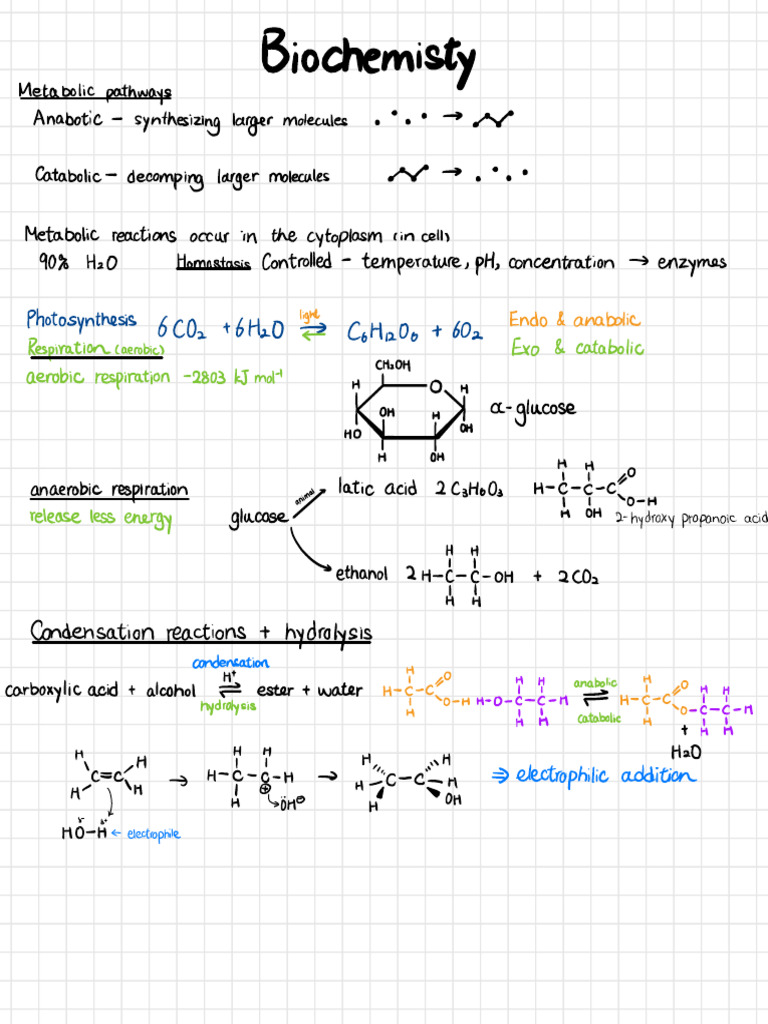 Biochemisty
Metabolic pathways
Anabotic – synthesizing larger molecules →
Catabolic – decomping larger molecules →
Metabolic reactions occur in the cytoplasm (in cell)
90% H2O Homostasis Controlled – temperature, pH, concentration → enzymes
Photosynthesis 6CO2 + 6H2O light ⇌ C6H12O6 + 6O2 Endo & anabolic
Respiration (aerobic) Exo & catabolic
aerobic respiration -2803 kJ mol⁻¹
CH2OH
H O H
OH H α-glucose
HO OH
H OH
anaerobic respiration glucose animal latic acid 2 C3H6O3
release less energy
H H O
H–C–C–C
H OH O–H
2-hydroxy propanoic acid
H H
ethanol 2 H–C–C–OH + 2CO2
H H
Condensation reactions + hydrolysis
condensation
H⁺
carboxylic acid + alcohol ⇌ ester + water
hydrolysis
H O
H–C–C
H O–H
H H
H–O–C–C–H
H H
anabolic
⇌
catabolic
H O
H–C–C
H O–C–C–H
H H
H H
+
H2O
H H
C=C
H H
→
H H
H–C–C–H
H ⊕
ÖH⊖
→
H H
H–C–C–H
H OH
⇒ electrophilic addition
HO–H ← electrophile